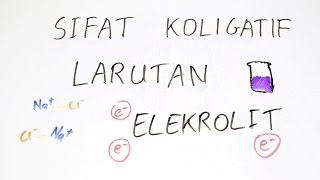 SIFAT KOLIGATIF
LARUTAN
Na⁺ Cl⁻ e⁻ ELEKROLIT
Cl⁻ Na⁺ e⁻ e⁻